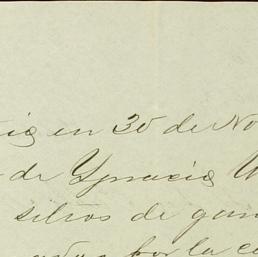 en 30 de No
de Ygnacio
sitios de gan
por la c